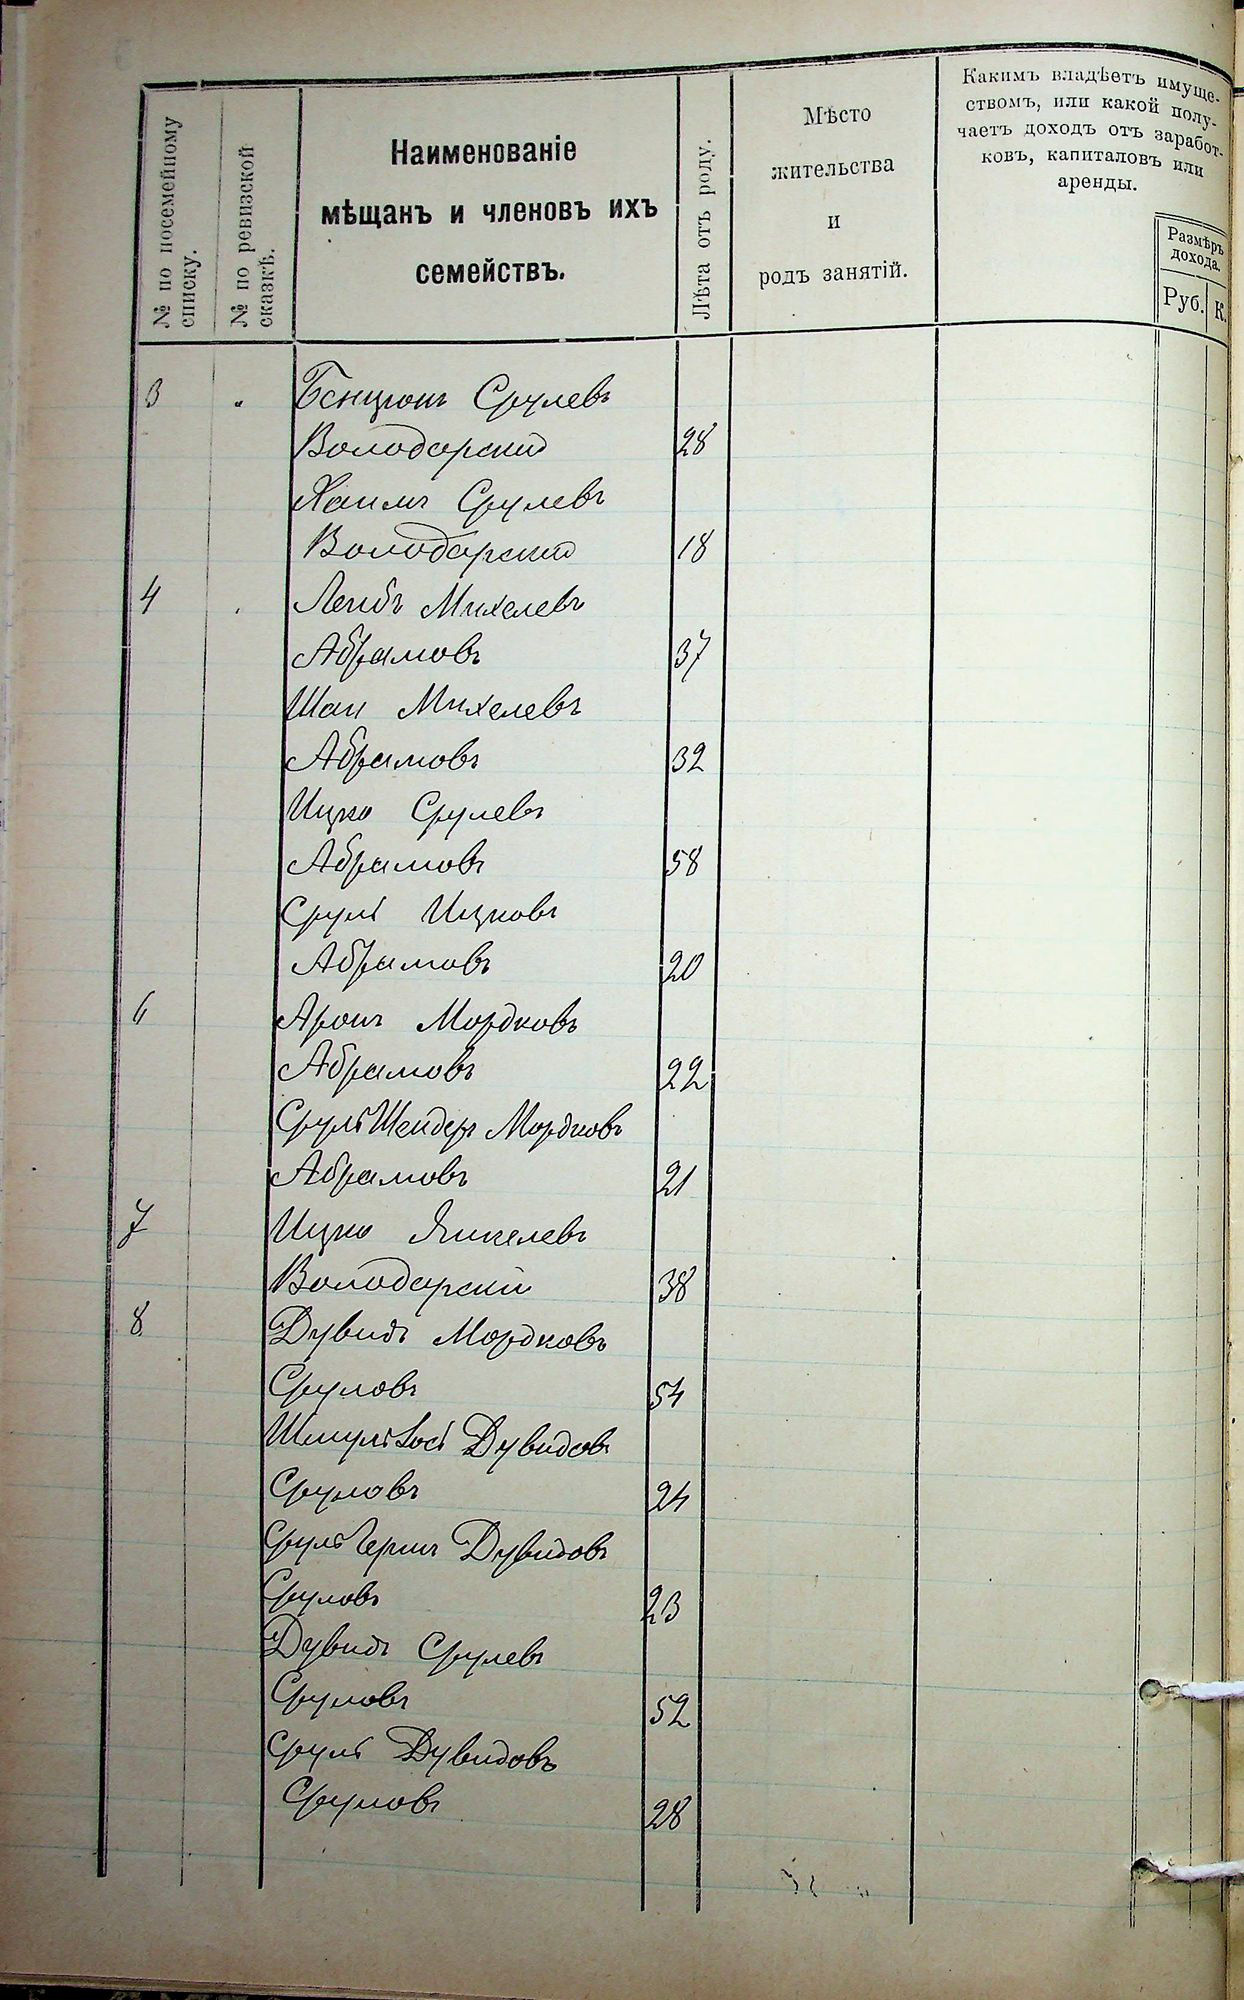 № по посемейному
списку.
№ по ревизской
сказкѣ.
Наименованіе
мѣщанъ и членовъ ихъ
семействъ.
Лѣта отъ роду.
Мѣсто
жительства
и
родъ занятій.
Какимъ владѣетъ имуще-
ствомъ, или какой полу-
чаетъ доходъ отъ заработ-
ковъ, капиталовъ или
аренды.
Размѣръ
дохода.
Руб. К.
3 " Бенціонъ Срулевъ
Володарскій 28
Хаимъ Срулевъ
Володарскій 18
4 Лейбъ Михелевъ
Абрамовъ 37
Шаи Михелевъ
Абрамовъ 32
Ицко Срулевъ
Абрамовъ 58
Сруль Ицковъ
Абрамовъ 20
6 Аронъ Мордковъ
Абрамовъ 22
Сруль Шендеръ Мордковъ
Абрамовъ 21
7 Ицко Янкелевъ
Володарскій 38
8 Дувидъ Мордковъ
Сруловъ 54
Шмуль Іосъ Дувидовъ
Сруловъ 24
Сруль Герш Дувидовъ
Сруловъ 23
Дувидъ Срулевъ
Сруловъ 52
Сруль Дувидовъ
Сруловъ 28